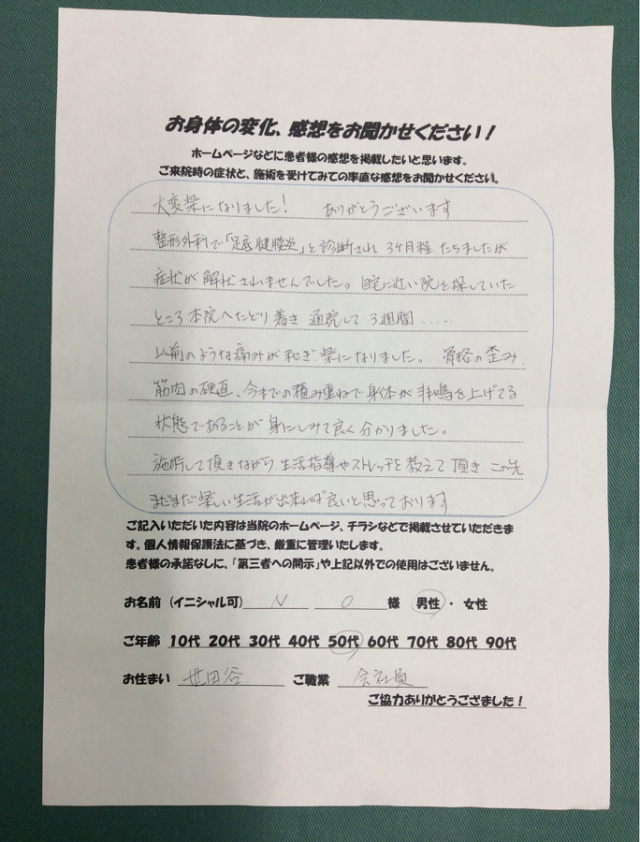 お身体の変化、感想をお聞かせください！
ホームページなどに患者様の感想を掲載したいと思います。
ご来院時の症状と、施術を受けてみての率直な感想をお聞かせください。
大変楽になりました！　ありがとうございます
整形外科で「足底腱膜炎」と診断され 3ヶ月程 たちましたが
症状が 解状されませんでした。自宅に近い院を探していた
ところ本院へたどり着き 通院して 3週間 .....
以前のような痛みが和ぎ 楽になりました。 骨格の歪み.
筋肉の硬直、今までの積み重ねで身体が 悲鳴を上げてる
状態であることが 身にしみて良く分かりました。
施術して頂きながら 生活指導やストレッチを教えて頂き この先
まだまだ楽しい生活が出来れば良いと思っております
ご記入いただいた内容は当院のホームページ、チラシなどで掲載させていただきま
す。個人情報保護法に基づき、厳重に管理いたします。
患者様の承諾なしに、「第三者への開示」や上記以外での使用はございません。
お名前（イニシャル可） N O 様 男性 ・ 女性
ご年齢 10代 20代 30代 40代 50代 60代 70代 80代 90代
お住まい 世田谷 ご職業 会社員
ご協力ありがとうござました！